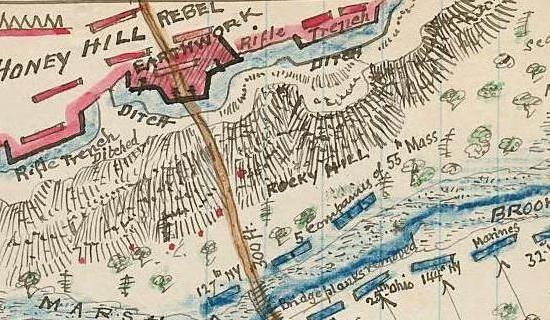 REBEL
HONEY HILL
EARTHWORK
Rifle Trench
DITCH
DITCH
Rifle Trench
Ditched
ROCKY HILL
5 Companies of 55th Mass
BROOK
127th NY
Bridge planks removed
Marines
144th NY
25th Ohio
32
MARSH